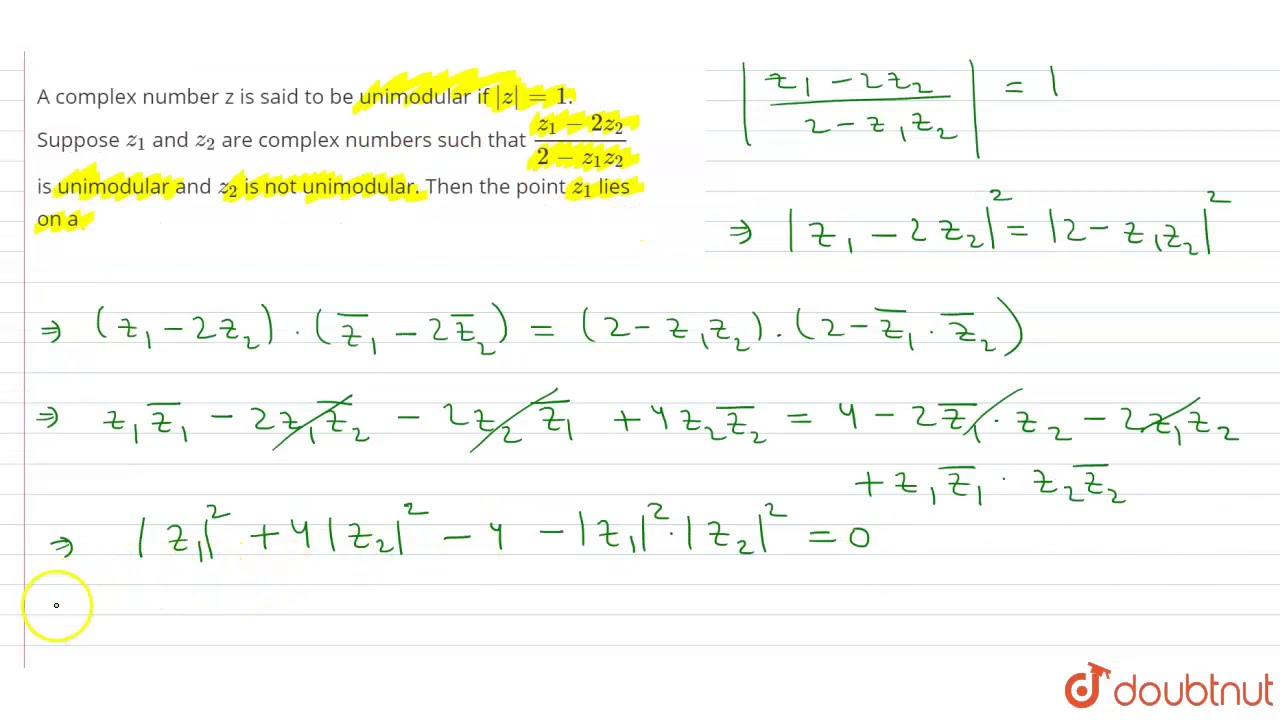 A complex number z is said to be unimodular if |z| = 1.
Suppose z₁ and z₂ are complex numbers such that (z₁ − 2z₂)/(2 − z₁z₂)
is unimodular and z₂ is not unimodular. Then the point z₁ lies
on a
|(z₁ − 2z₂)/(2 − z₁z₂)| = 1
⇒ |z₁ − 2z₂|² = |2 − z₁z₂|²
⇒ (z₁ − 2z₂) · (z̅₁ − 2z̅₂) = (2 − z₁z₂) · (2 − z̅₁ · z̅₂)
⇒ z₁z̅₁ − 2z₁z̅₂ − 2z₂z̅₁ + 4z₂z̅₂ = 4 − 2z̅₁ · z₂ − 2z₁z₂
+ z₁z̅₁ · z₂z̅₂
⇒ |z₁|² + 4|z₂|² − 4 − |z₁|² · |z₂|² = 0
doubtnut